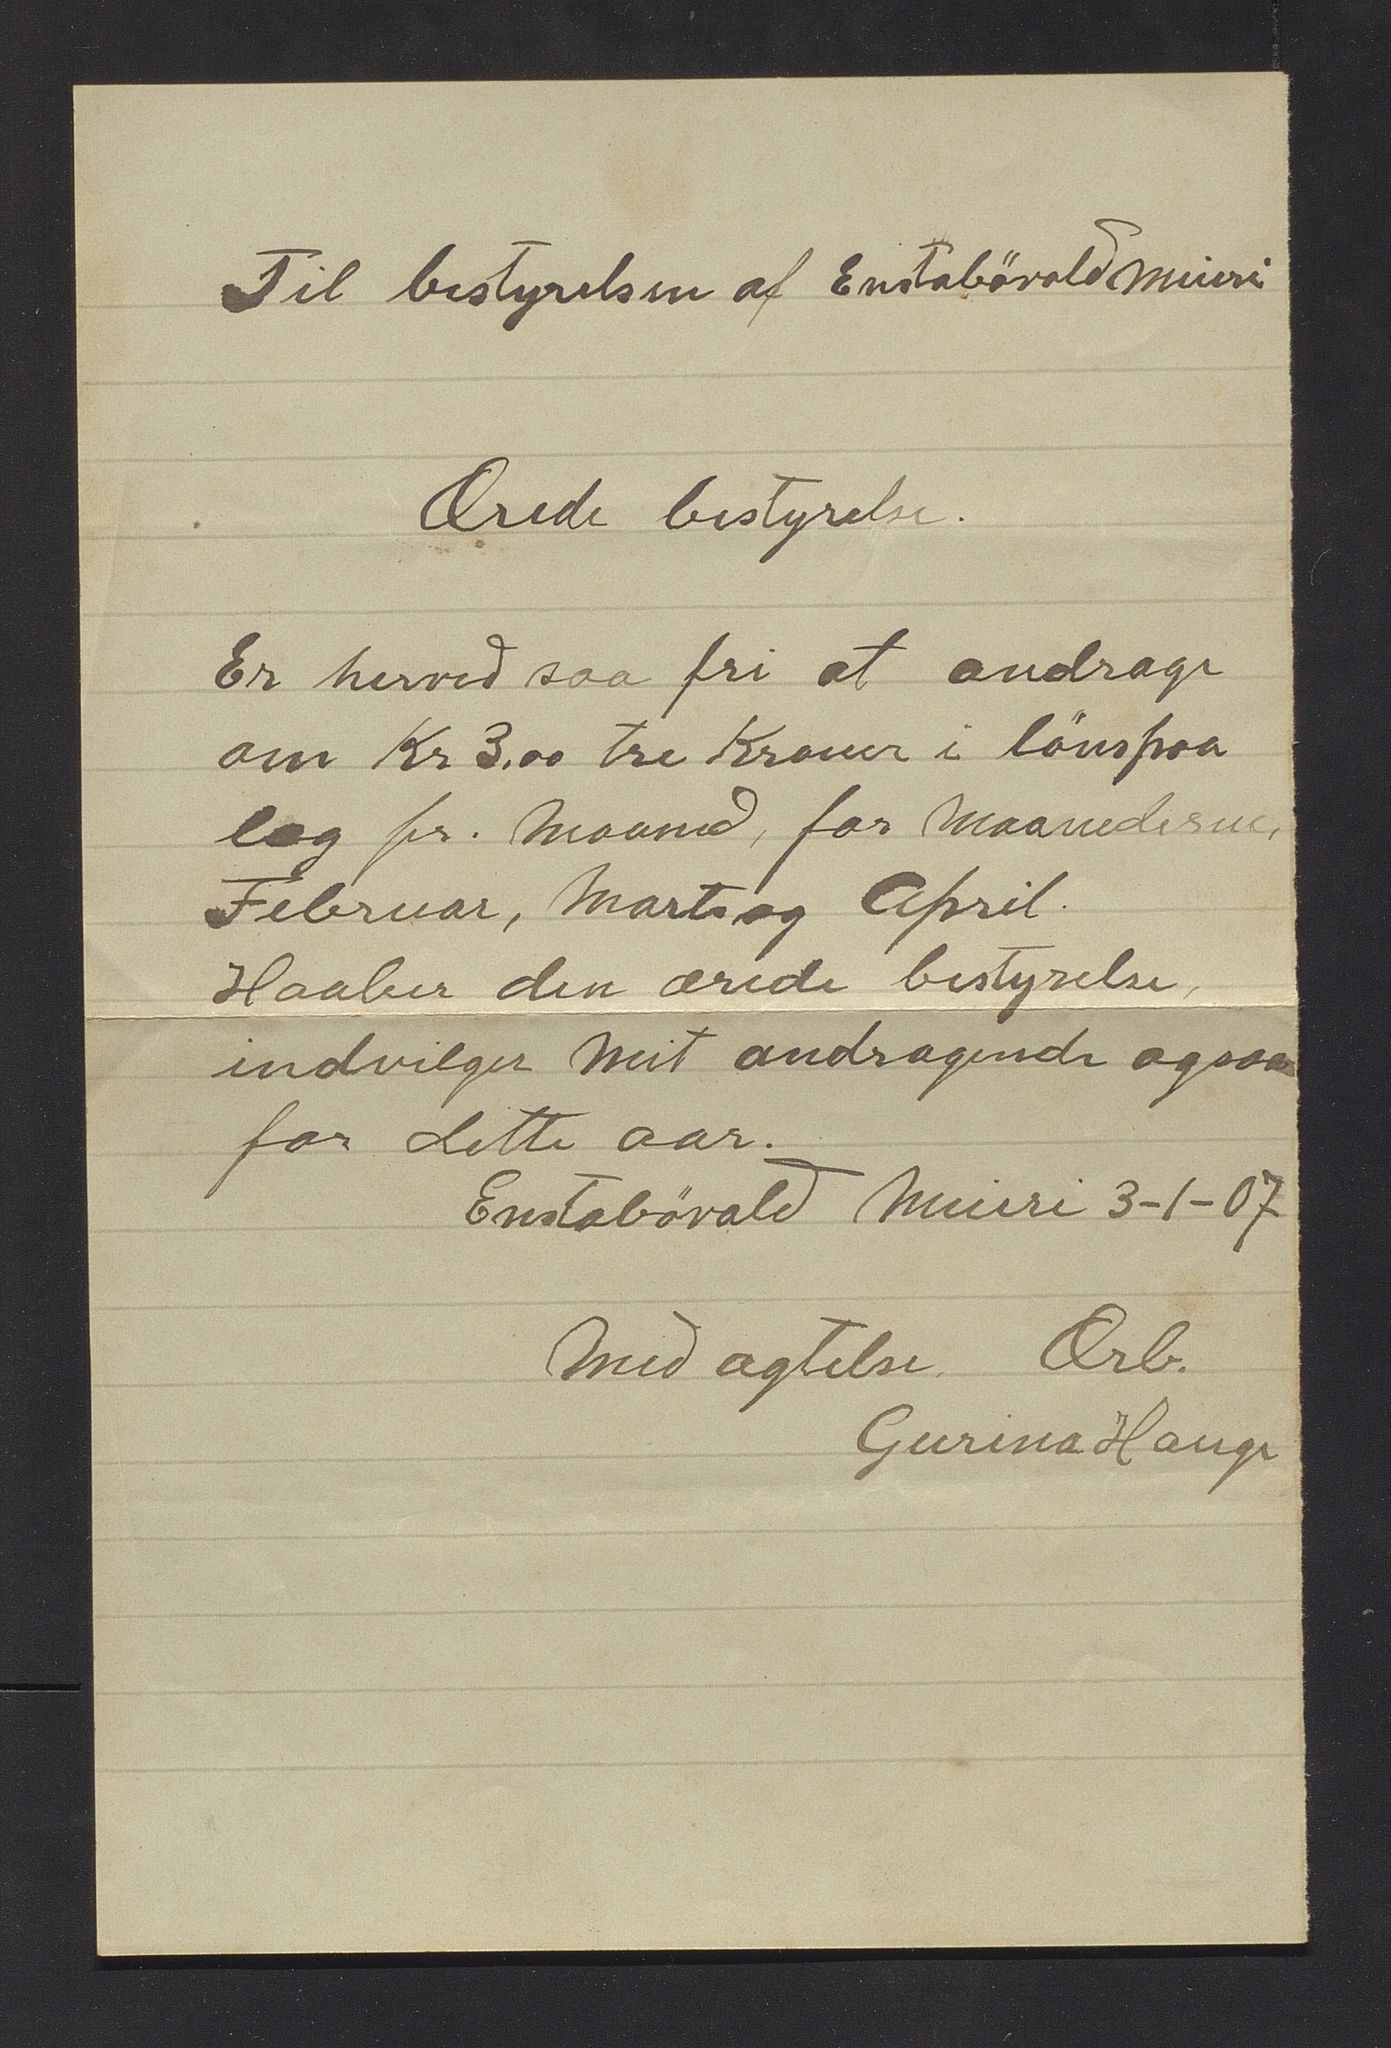 Til bestyrelsen af Enstabövold Mieri
Ærede bestyrelse.
Er herved saa fri at andrage
om Kr 3,00 tre Kroner i lönspaa
læg pr. Maaned, for Maanederne,
Februar, Marts og April.
Haaber den ærede bestyrelse,
indvilger Mit andragende ogsaa
for dette aar.
Enstabövold Mieri 3-1-07
Med agtelse. Ærb.
Gurina Hauge